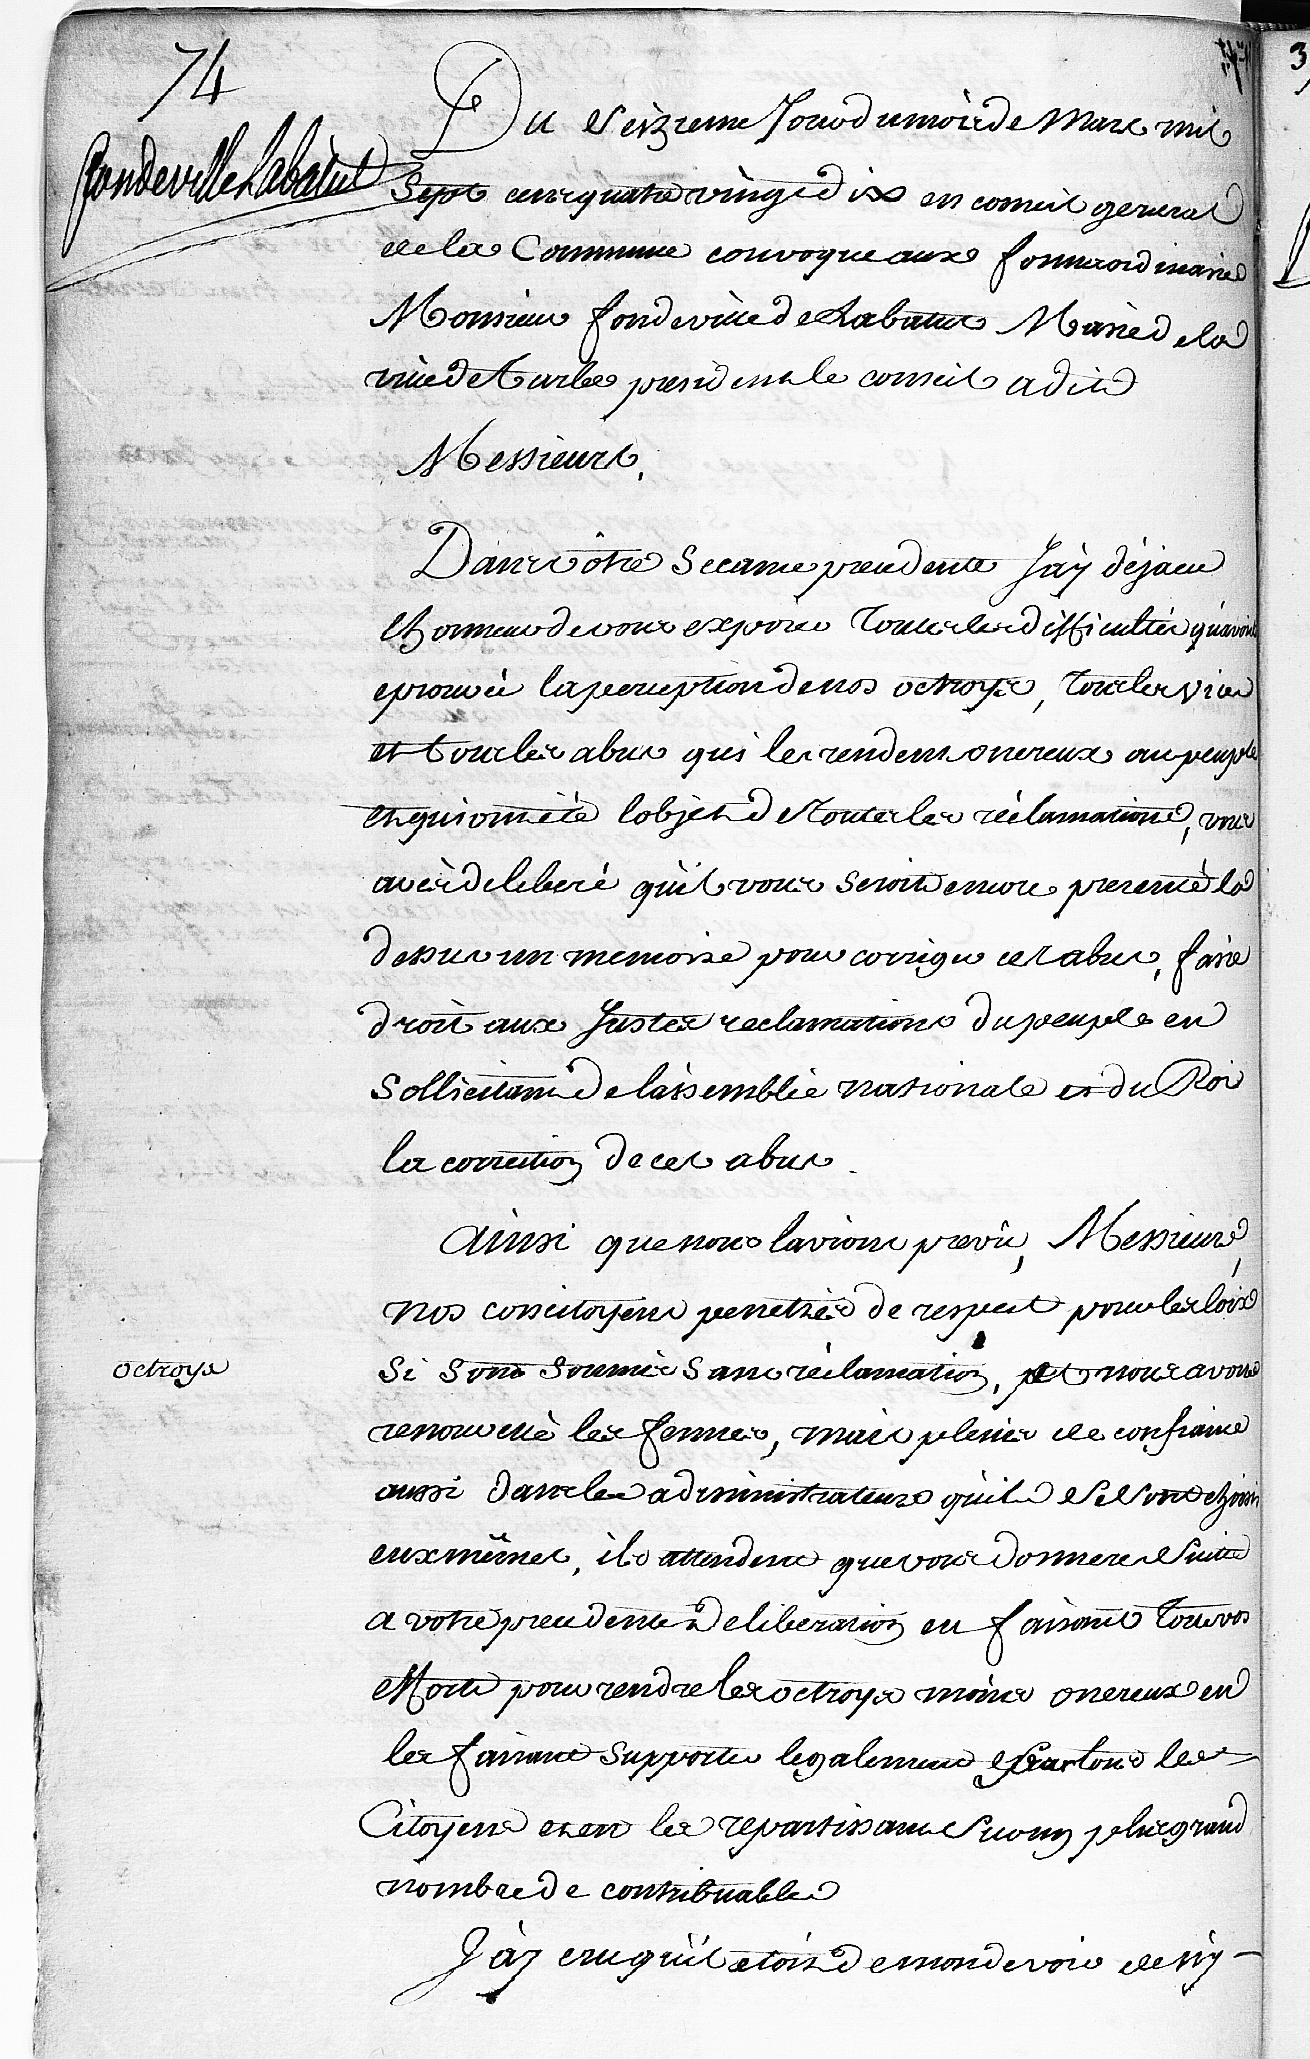 74
fondeville Labatut
Du Seizieme Jour du mois de Mars mil
Sept cens quatre vingt dix en conseil general
de la Commune convoqué aux formes ordinaires
Monsieur fondeville de Labatut Maire de la
ville de tarbes president le conseil a dit
Messieurs,
Dans vôtre Seance precedente J'ày déja eu
lhonneur de vous exposer toutes les difficultés qu'avoit
eprouvée la perception de nos octroys, tous les vices
et tous les abus qui les rendent onereux au peuple
et qui ont été l'objet de toutes les réclamations, vous
avés deliberé qu'il vous seroit encore presenté la
dessus un memoire pour corriger ces abus, faire
droit aux Justes reclamations du peuple en
Sollicitant de l'assemblée nationale et du Roi
la correction de ces abus.
Ainsi que nous l'avions prevû, Messieurs,
nos concitoyens penetrés de respect pour les loix
si sont soumis sans réclamation, et nous avons
renouvellé les fermes, mais pleins de confiance
aussi dans les administrateurs qu'ils Se Sont choisis
eux mêmes, ils attendent que vous donneres Suite
a votre precedente deliberation en faisant tous vos
efforts pour rendre les octroys moins onereux en
les faisant supporter legalement par tous les
Citoyens et en les repartissant Sur un plus grand
nombre de contribuables
J'ày cru qu'il etoit de mon devoir de n'y
octroys
3